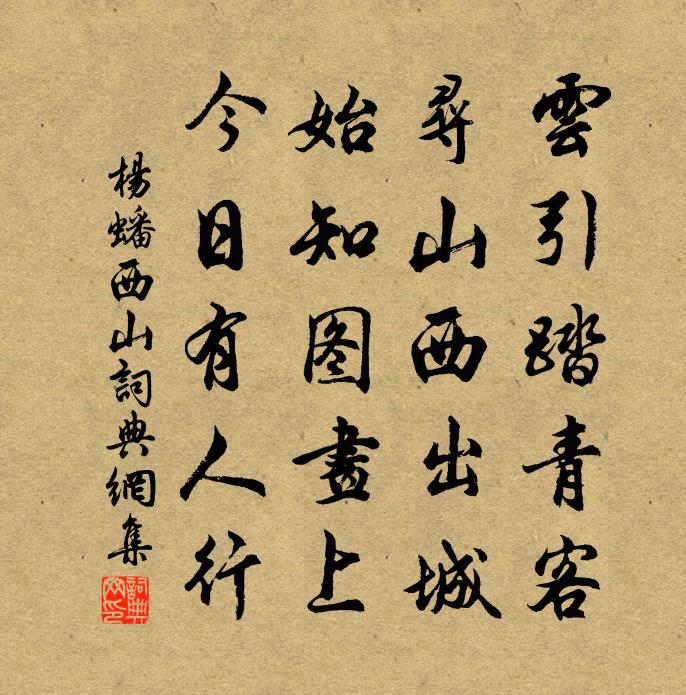 雲引踏青客
尋山西出城
始知图畫上
今日有人行
楊蟠西山詞典網集
詞典网印